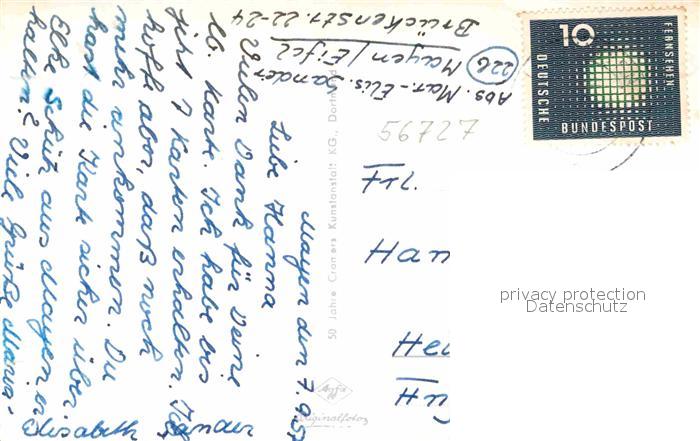 Abs. Mar.-Elis. Sander
(22b) Mayen/Eifel
Brückenstr. 22-24
Mayen den 7.9.57
Liebe Hanna
Vielen Dank für Deine
lb. Karte. Ich habe bis
jetzt 7 Karten erhalten. Ich
hoffe aber, daß noch
mehr ankommen. Du
hast die Karte sicher über
Elke Schütz aus Mayen er-
halten? Viele Grüße Maria-
Elisabeth Sander
50 Jahre Cramers Kunstanstalt KG., Dortmund
Agfa
Originalfoto
56727
Frl.
Han
Hei
10
FERNSEHEN
DEUTSCHE
BUNDESPOST
privacy protection
Datenschutz